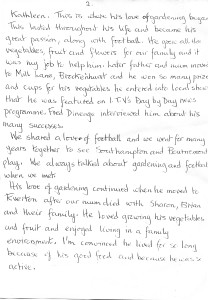 2.
Kathleen: This is where his love of gardening began
This lasted throughout his life and became his
great passion, along with football. He grew all the
vegetables, fruit and flowers for our family and it
was my job to help him. Later father and mum moved
to Mill Lane, Brockenhurst and he won so many prizes
and cups for his vegetables he entered into local shows
that he was featured on I.T.V's Day by Day news
Programme. Fred Dineage interviewed him about his
many successes.
We shared a love of football and we went for many
years together to see Southampton and Bournemouth
play. We always talked about gardening and football
when we met.
His love of gardening continued when he moved to
Tiverton after our mum died with Sharon, Brian
and their family. He loved growing his vegetables
and fruit and enjoyed living in a family
environment. I'm convinced he lived for so long
because of his good food and because he was so
active.